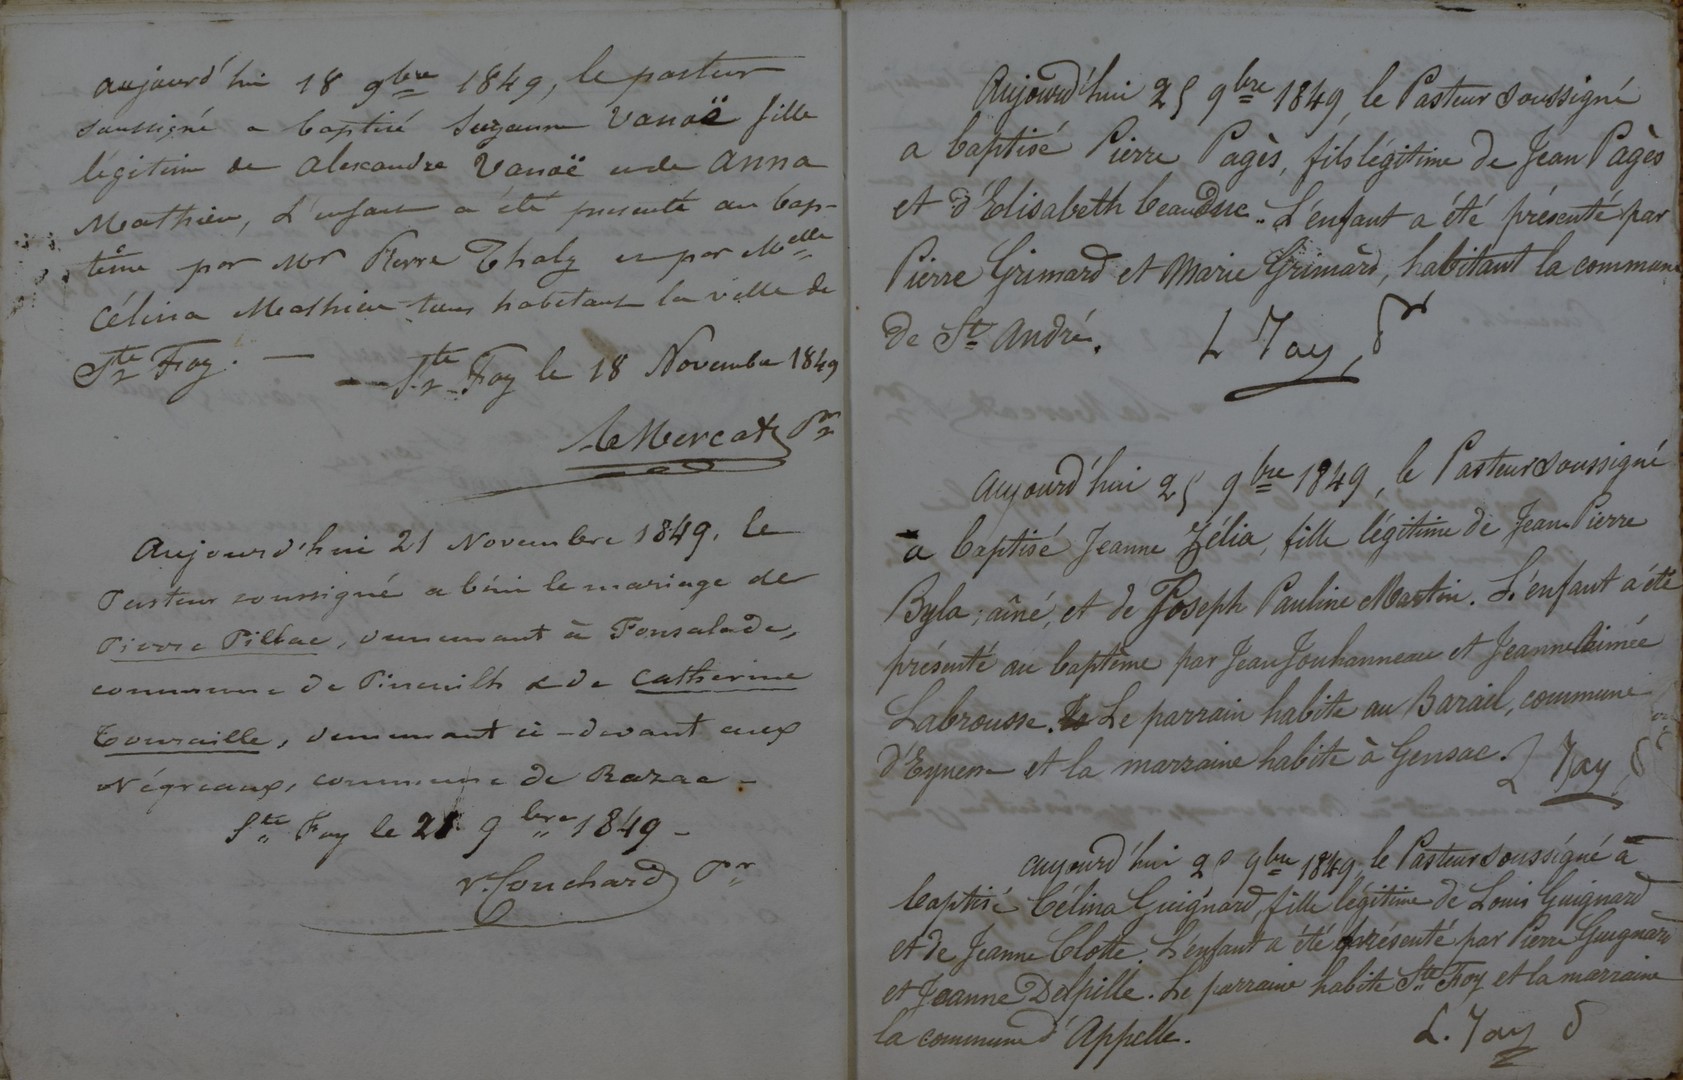 Aujourd'hui 18 9bre 1849, le pasteur
soussigné a baptisé Suzanne Vanoë fille
légitime de Alexandre Vanoë et de Anna
Mathieu, L'enfant a été présenté au bap-
tême par Mr Pierre Thaly et par Melle
Célina Mathieu tous habitant la ville de
Ste Foy. —
Ste Foy le 18 Novembre 1849
Mercat Pr
Aujourd'hui 21 Novembre 1849, le
Pasteur soussigné a béni le mariage de
Pierre Pilbac, demeurant à Fonsalade,
commune de Pineuilh & de Catherine
Touraille, demeurant ci-devant aux
Négreaux, commune de Razac -
Ste Foy le 21 9bre 1849 -
Couchard Pr
Aujourd'hui 25 9bre 1849, le Pasteur soussigné
a baptisé Pierre Pagès, fils légitime de Jean Pagès
et d'Elisabeth beauduc. L'enfant a été présenté par
Pierre Grimard et Marie Grimard, habitant la commune
de St André.
L Jay
Aujourd'hui 25 9bre 1849, le Pasteur soussigné
a baptisé Jeanne Zélia, fille légitime de Jean Pierre
Byla, aîné, et de Joseph Pauline Martin. L'enfant a été
présenté au baptême par Jean Jouhanneau et Jeanne Aimée
Labrousse. Le parrain habite au Barail, commune
d'Eynesse et la marraine habite à Gensac. L Jay
Aujourd'hui 9bre 1849 le Pasteur soussigné a
baptisé Célina Guignard, fille légitime de Louis Guignard
et de Jeanne Clotte. L'enfant a été présenté par Pierre Guignard
et Jeanne Delpille. Le parraine habite Ste Foy et la marraine
la commune d'Appelle.
L. Jay